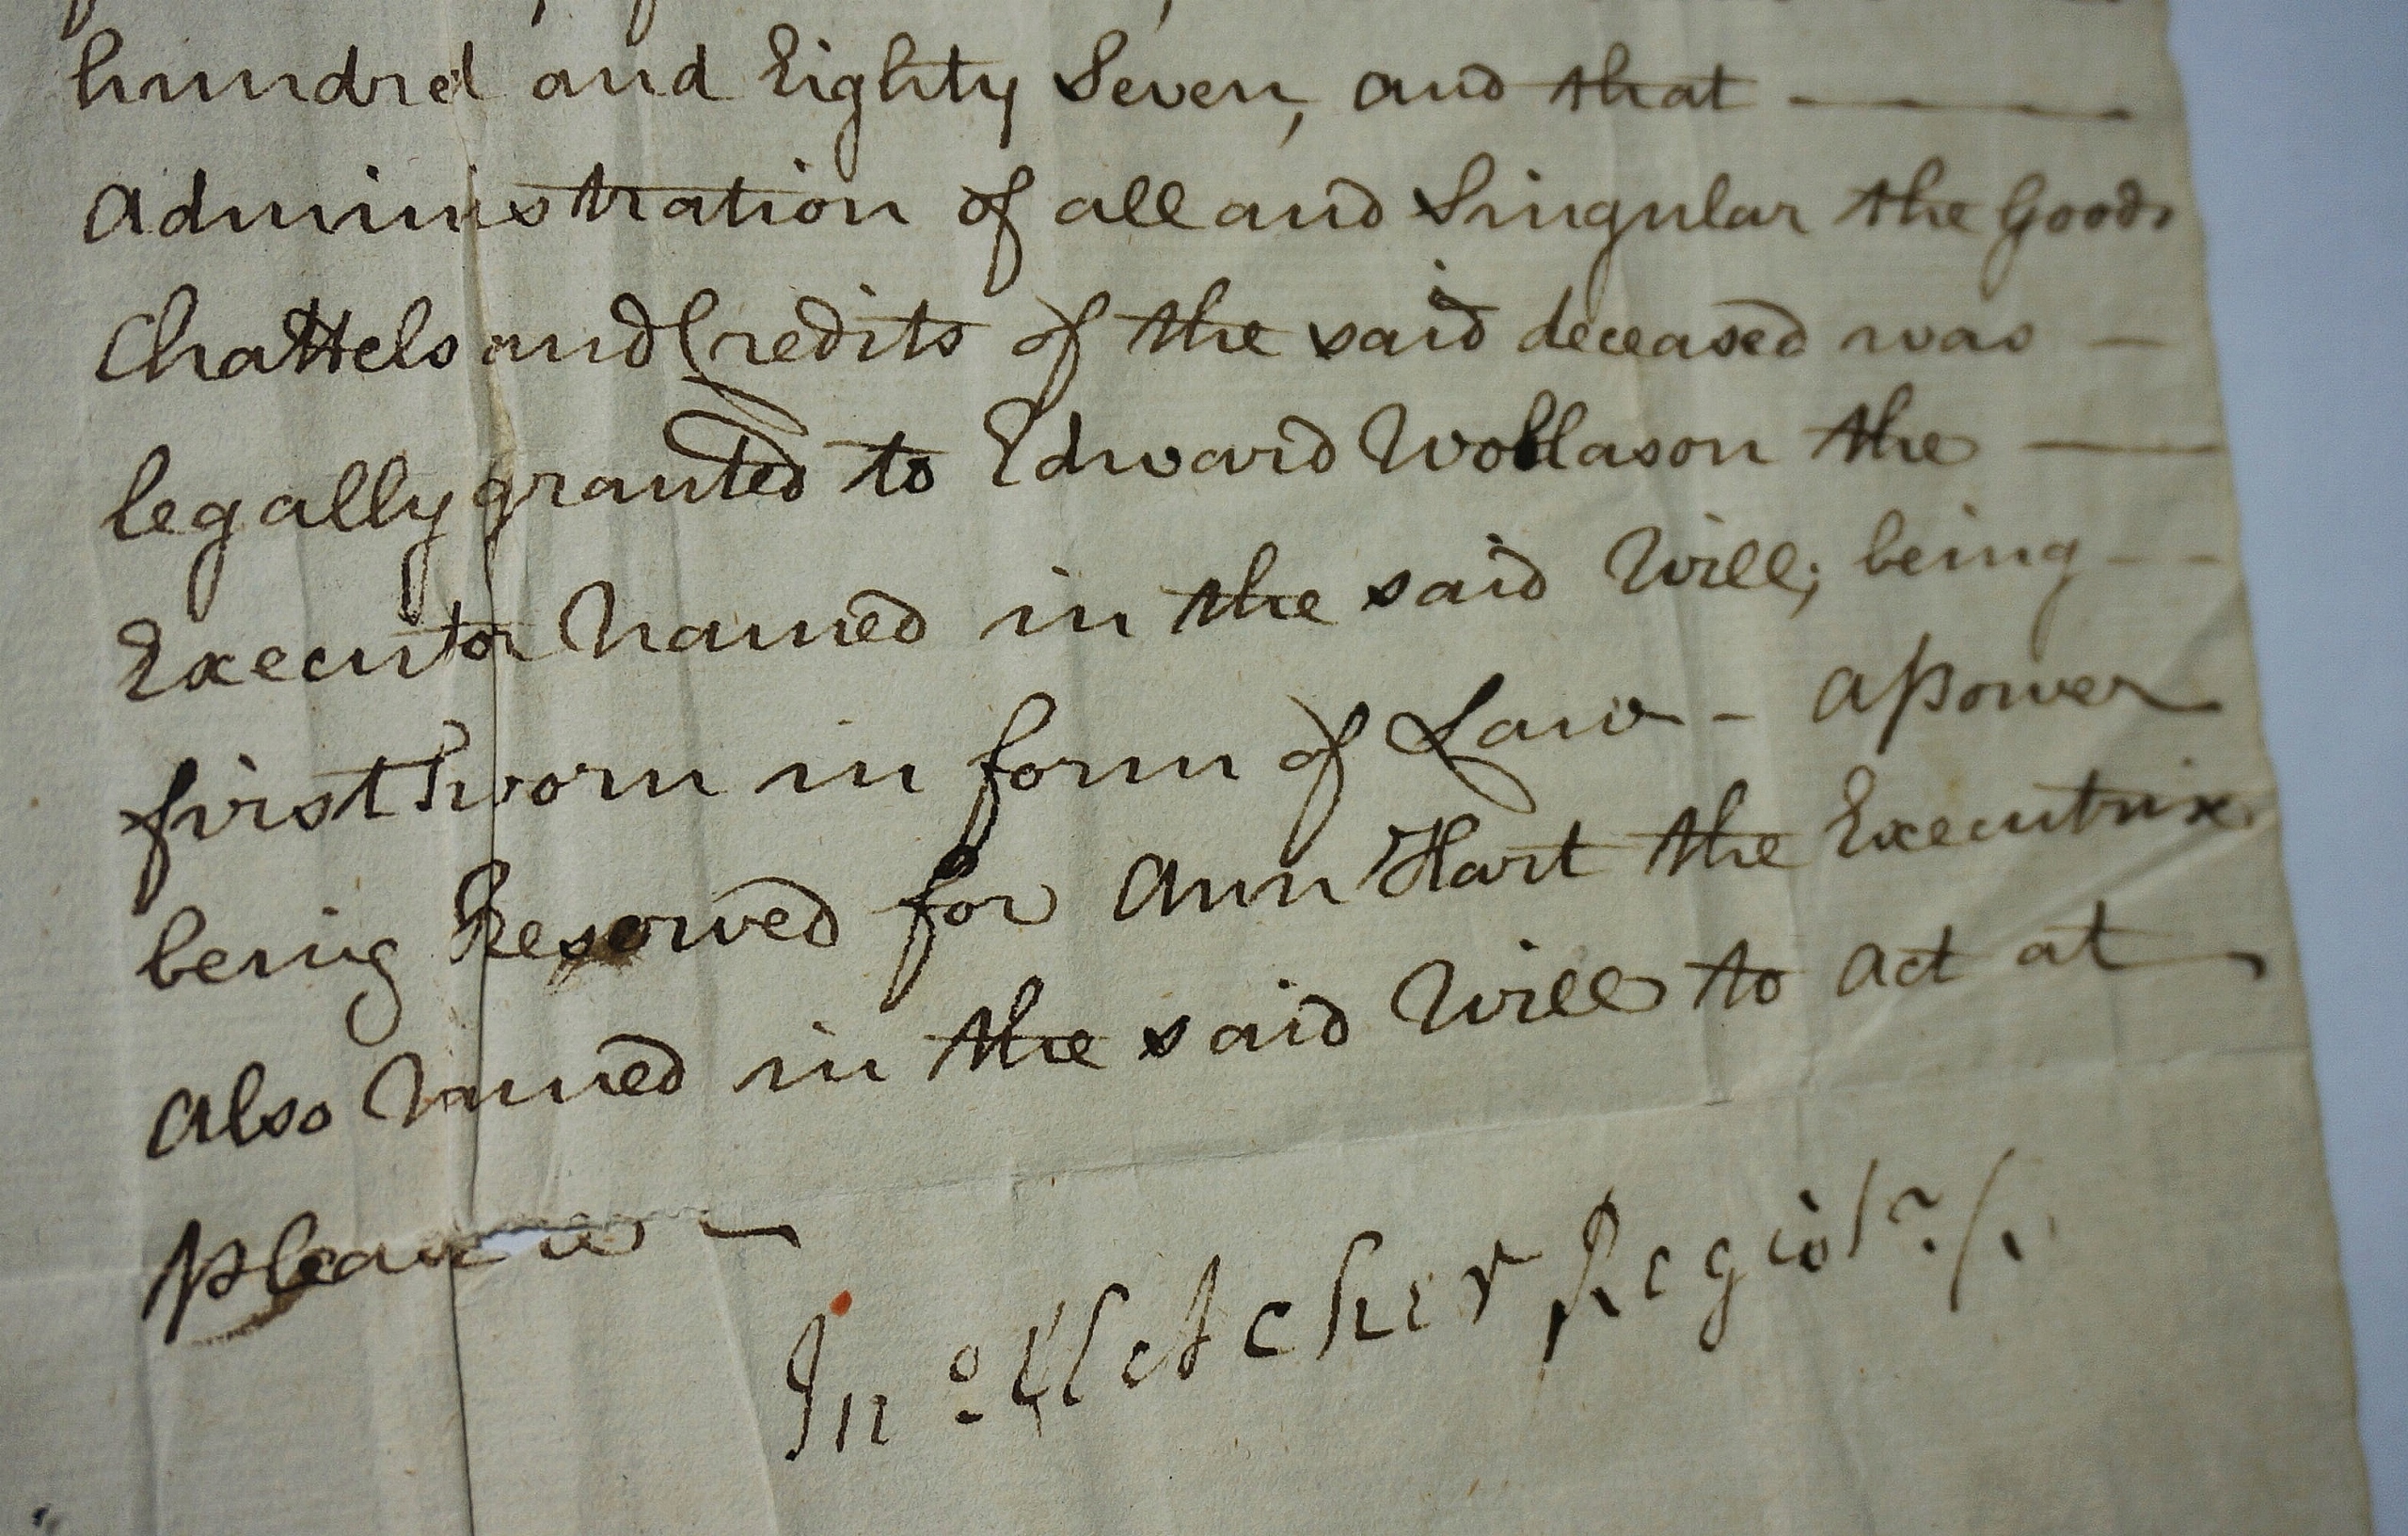 hundred and Eighty Seven, and that —
Administration of all and Singular the Goods
Chattels and Credits of the said deceased was —
legally granted to Edward Wollason the —
Executor Named in the said Will; being —
first Sworn in form of Law - a power
being Reserved for Ann Hart the Executrix
also Named in the said Will to act at
pleasure —
Jno. Fletcher Regist.r